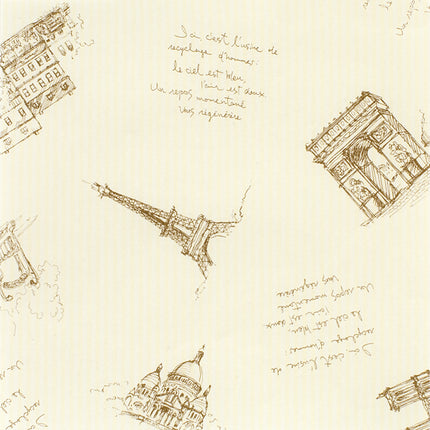 Ici, c'est l'usine de
recyclage d'hommes:
le ciel est bleu,
l'air est doux
Un repos momentané
vous régénère
Un repos
vous
Ici, c'est l'usine de
recyclage d'hommes:
le ciel est bleu,
l'air est doux
Un repos momentané
vous régénère
le ciel
recyclage